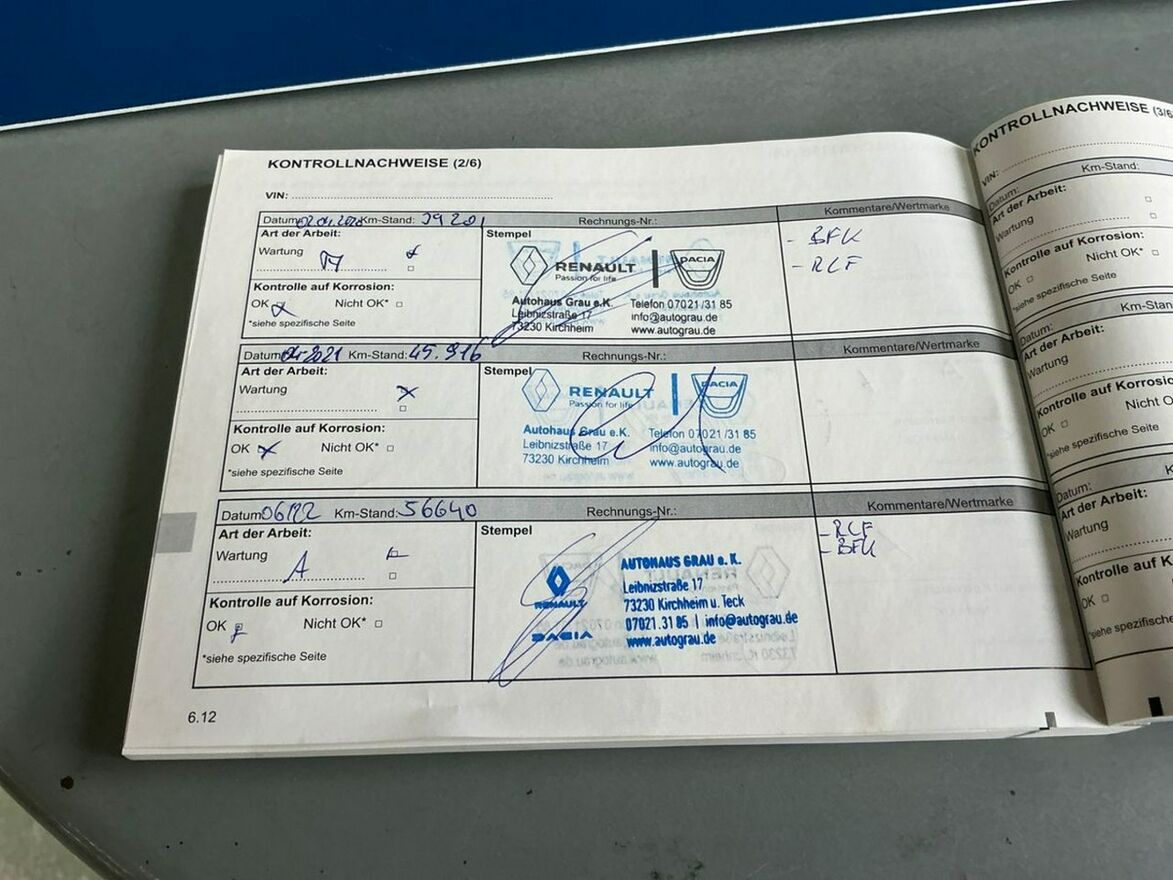 KONTROLLNACHWEISE (2/6)
VIN:
Datum: Km-Stand: 39201 Rechnungs-Nr.: Kommentare/Wertmarke
Art der Arbeit: Stempel
Wartung
- BFK
- RCF
RENAULT DACIA
Passion for life
Autohaus Grau e.K. Telefon 07021/31 85
Leibnizstraße 17 info@autograu.de
73230 Kirchheim www.autograu.de
Kontrolle auf Korrosion:
OK Nicht OK*
*siehe spezifische Seite
Datum: 04.2021 Km-Stand: 45.916 Rechnungs-Nr.: Kommentare/Wertmarke
Art der Arbeit: Stempel
Wartung
RENAULT DACIA
Passion for life
Autohaus Grau e.K. Telefon 07021/31 85
Leibnizstraße 17 info@autograu.de
73230 Kirchheim www.autograu.de
Kontrolle auf Korrosion:
OK Nicht OK*
*siehe spezifische Seite
Datum: 06/22 Km-Stand: 56640 Rechnungs-Nr.: Kommentare/Wertmarke
Art der Arbeit: Stempel
Wartung
A
- RCF
- BFK
RENAULT
DACIA
AUTOHAUS GRAU e.K.
Leibnizstraße 17
73230 Kirchheim u. Teck
07021.31 85 | info@autograu.de
www.autograu.de
Kontrolle auf Korrosion:
OK Nicht OK*
*siehe spezifische Seite
6.12
KONTROLLNACHWEISE (3/6
VIN:
Datum: Km-Stand:
Art der Arbeit:
Wartung
Kontrolle auf Korrosion:
OK Nicht OK*
*siehe spezifische Seite
Datum:
Art der Arbeit:
Wartung
Kontrolle auf
OK Nicht
*siehe spezifische Seite
Datum:
Art der Arbeit:
Wartung
Kontrolle auf
OK
*siehe spezifische